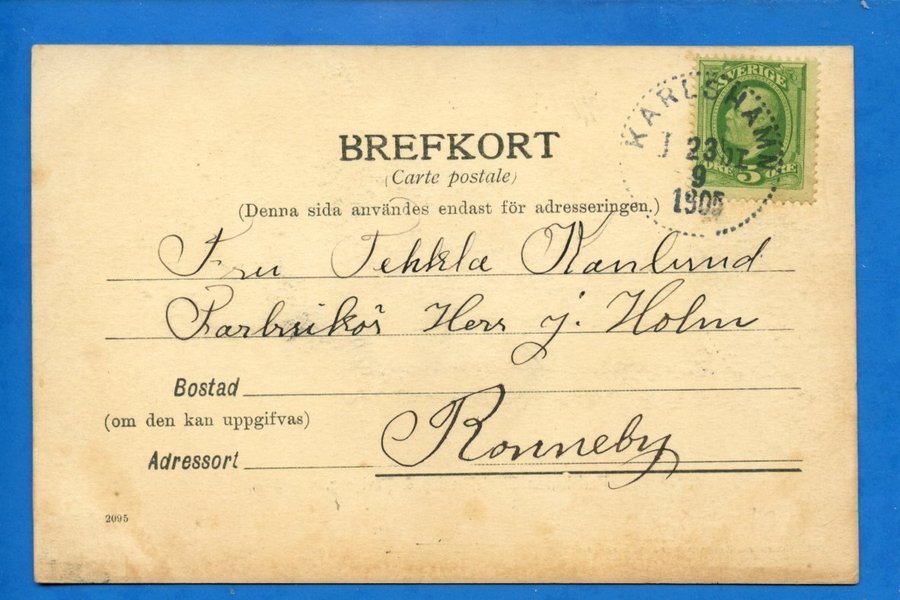 SVERIGE
5 ÖRE
KARLSHAMN
23
9
1905
BREFKORT
(Carte postale)
(Denna sida användes endast för adresseringen.)
Fru Tehkla Kanlund
Herr J. Holm
Bostad
(om den kan uppgifvas)
Ronneby
Adressort
2095